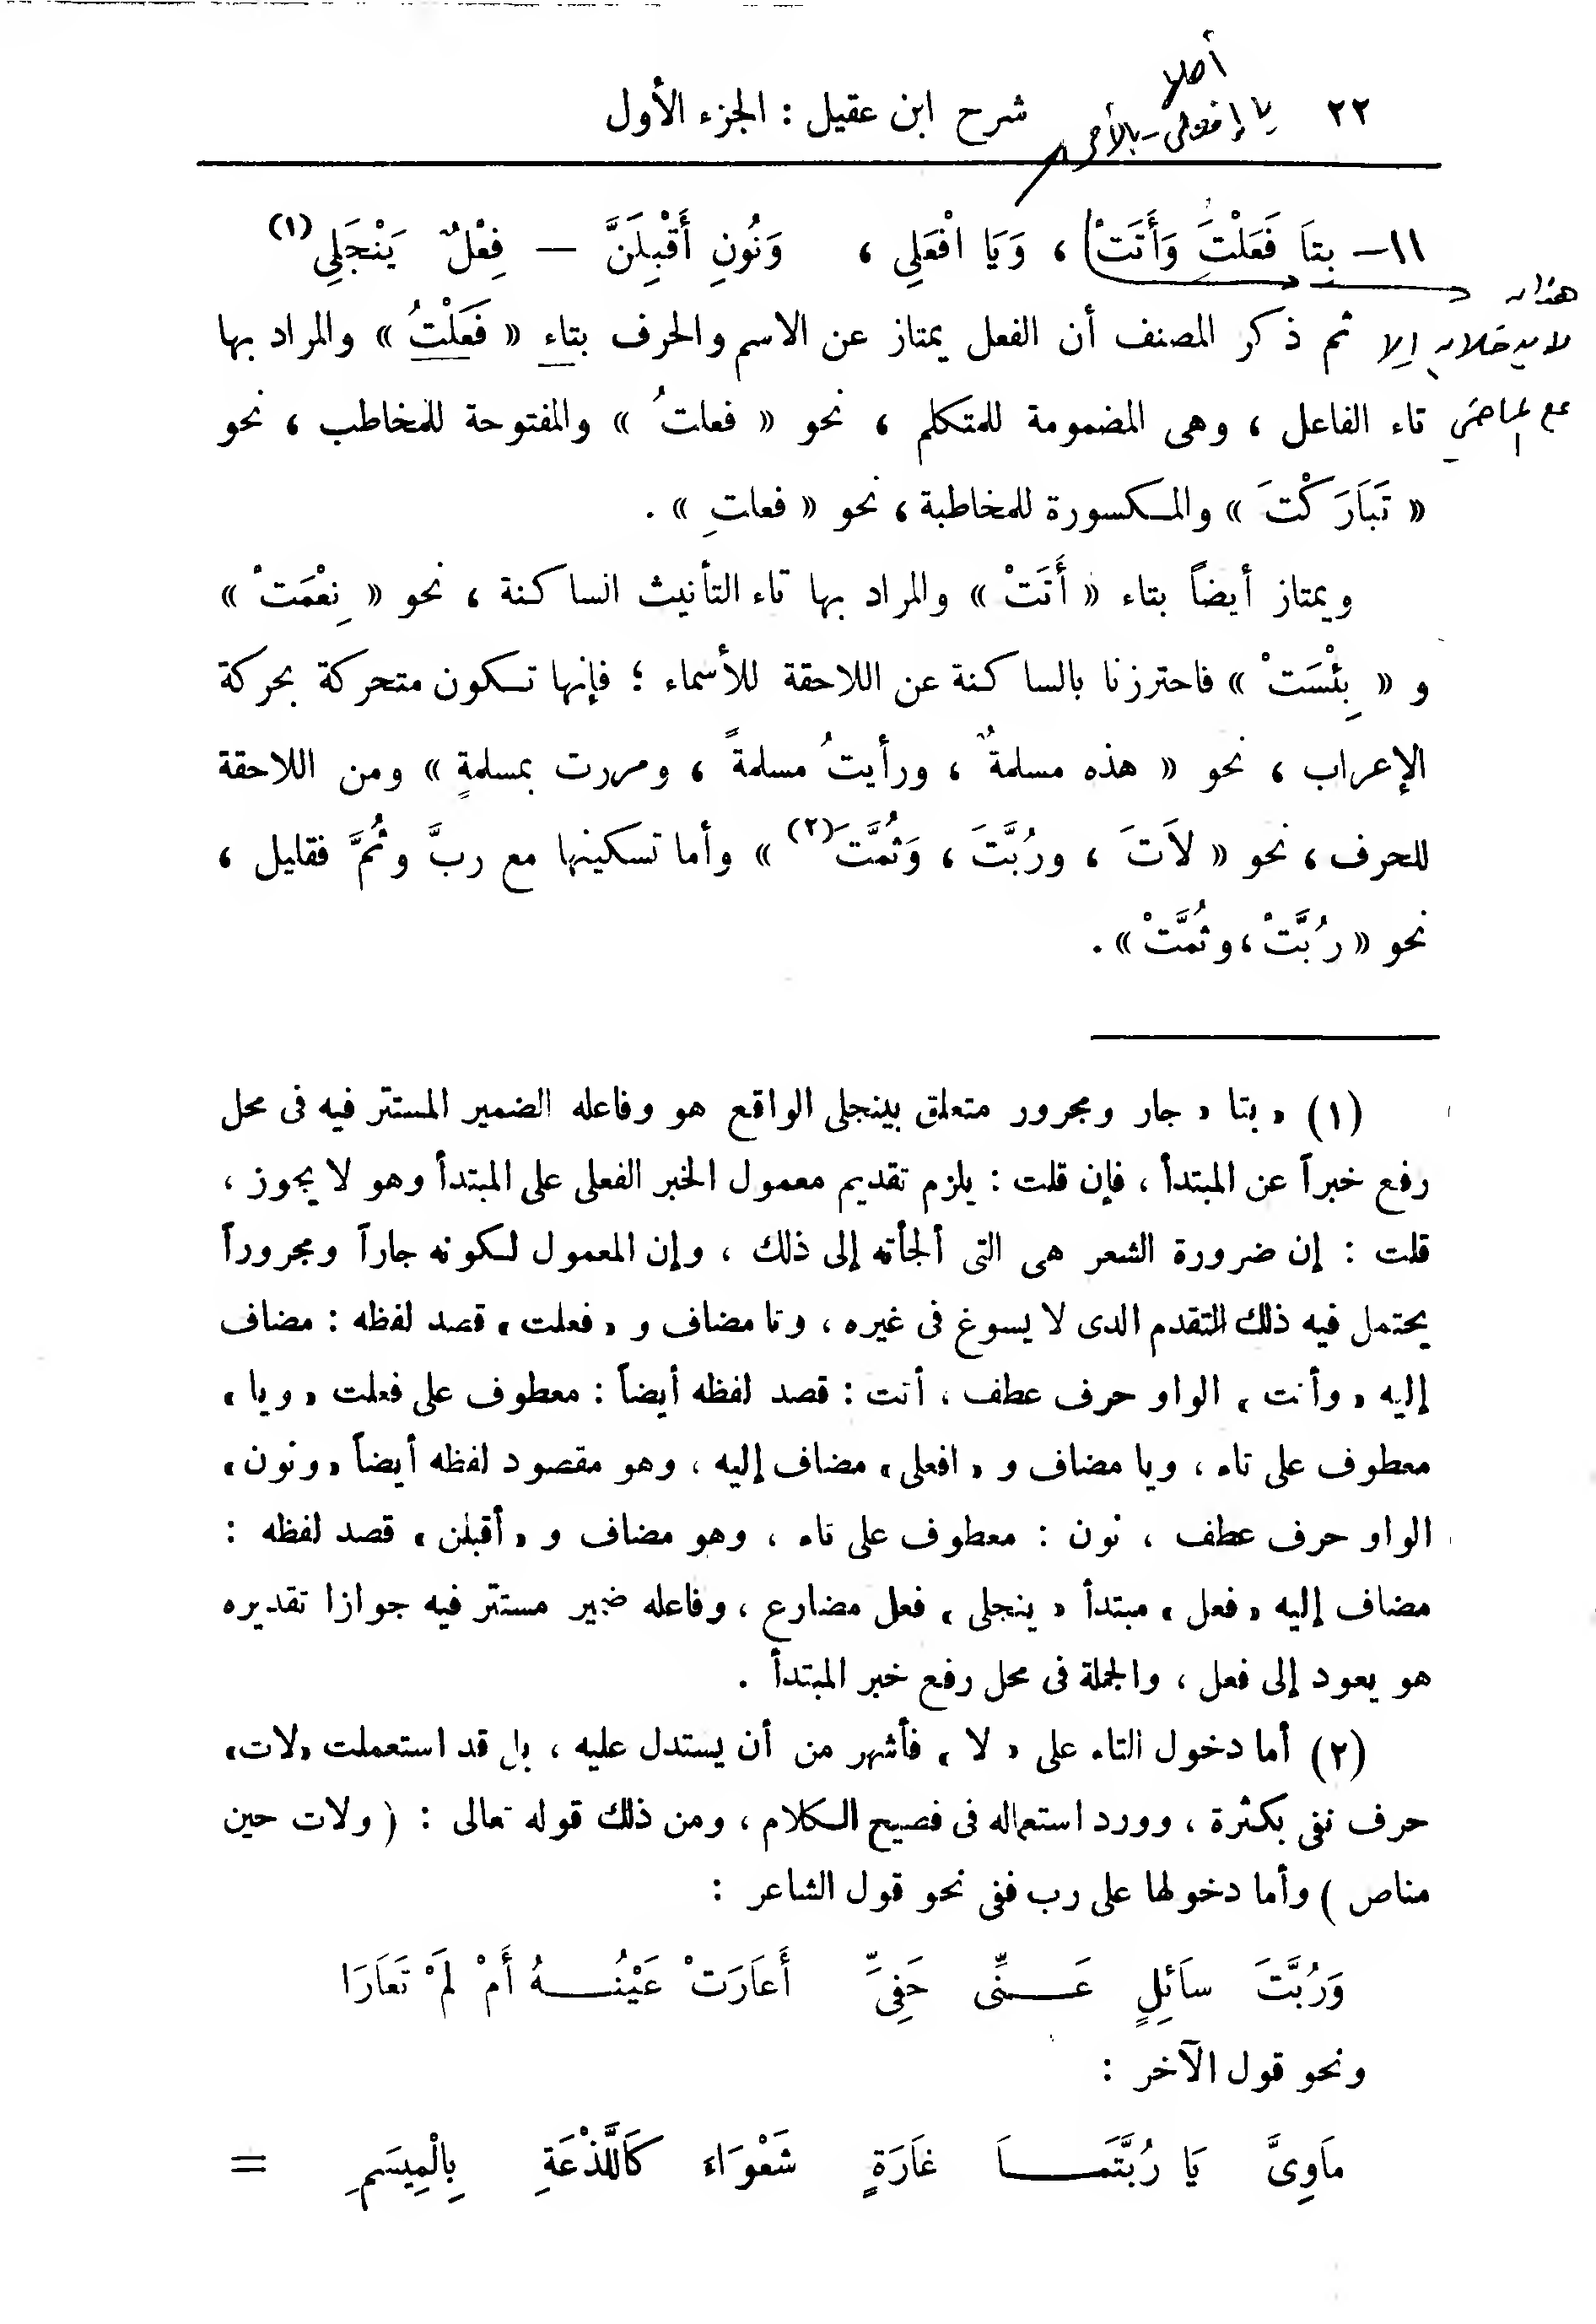 ٢٢ شرح ابن عقيل : الجزء الأول
١١— بِتاَ فَعَلْتَ وَأَتَتْ ، وَيَا افْعَلِي ، وَنُونِ أَقْبِلَنَّ — فِعْلٌ يَنْجَلِي (١)
هذان
لا يدخلان إلا
مع الماضي
ثم ذكر المصنف أن الفعل يمتاز عن الاسم والحرف بتاء « فَعَلْتُ » والمراد بها
تاء الفاعل ، وهى المضمومة للمتكلم ، نحو « فعلتُ » والمفتوحة للمخاطب ، نحو
« تَبَارَكْتَ » والمكسورة للمخاطبة ، نحو « فعلتِ » .
ويمتاز أيضاً بتاء « أَتَتْ » والمراد بها تاء التأنيث الساكنة ، نحو « نِعْمَتْ »
و « بِئْسَتْ » فاحترزنا بالساكنة عن اللاحقة للأسماء ؛ فإنها تكون متحركة بحركة
الإعراب ، نحو « هذه مسلمةٌ ، ورأيتُ مسلمةً ، ومررت بمسلمةٍ » ومن اللاحقة
للحرف ، نحو « لاَتَ ، ورُبَّتَ ، وَثُمَّتَ (٢) » وأما تسكينها مع ربَّ وثُمَّ فقليل ،
نحو « رُبَّتْ ، وثُمَّتْ » .
(١) « بتا » جار ومجرور متعلق بينجلى الواقع هو وفاعله الضمير المستتر فيه فى محل
رفع خبراً عن المبتدأ ، فإن قلت : يلزم تقديم معمول الخبر الفعلى على المبتدأ وهو لا يجوز ،
قلت : إن ضرورة الشعر هى التى ألجأته إلى ذلك ، وإن المعمول لكونه جاراً ومجروراً
يحتمل فيه ذلك التقدم الذى لا يسوغ فى غيره ، وتا مضاف و « فعلت » قصد لفظه : مضاف
إليه « وأتت » الواو حرف عطف ، أتت : قصد لفظه أيضاً : معطوف على فعلت « ويا »
معطوف على تاء ، ويا مضاف و « افعلى » مضاف إليه ، وهو مقصود لفظه أيضاً « ونون »
الواو حرف عطف ، نون : معطوف على تاء ، وهو مضاف و « أقبلن » قصد لفظه :
مضاف إليه « فعل » مبتدأ « ينجلى » فعل مضارع ، وفاعله ضمير مستتر فيه جوازا تقديره
هو يعود إلى فعل ، والجملة فى محل رفع خبر المبتدأ .
(٢) أما دخول التاء على « لا » فأشهر من أن يستدل عليه ، بل قد استعملت «لات»
حرف نفى بكثرة ، وورد استعماله فى فصيح الكلام ، ومن ذلك قوله تعالى : ( ولات حين
مناص ) وأما دخولها على رب ففى نحو قول الشاعر :
وَرُبَّتَ سَائِلٍ عَنِّى حَفِىٍّ أَعَارَتْ عَيْنُهُ أَمْ لَمْ تَعَارَا
ونحو قول الآخر :
مَاوِىَّ يَا رُبَّتَمَا غَارَةٍ شَعْوَاءَ كَاللَّذْعَةِ بِالْمِيسَمِ =